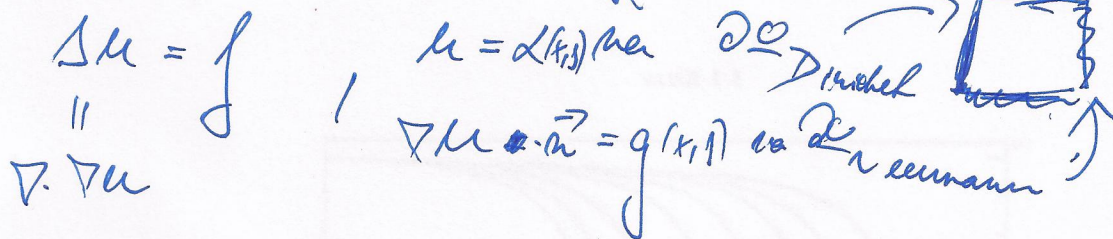 Δu = f , u = α(x,y) na ∂Ω Dirichlet
=
∇·∇u
∇u·n⃗ = g(x,y) na ∂Ω Neumann